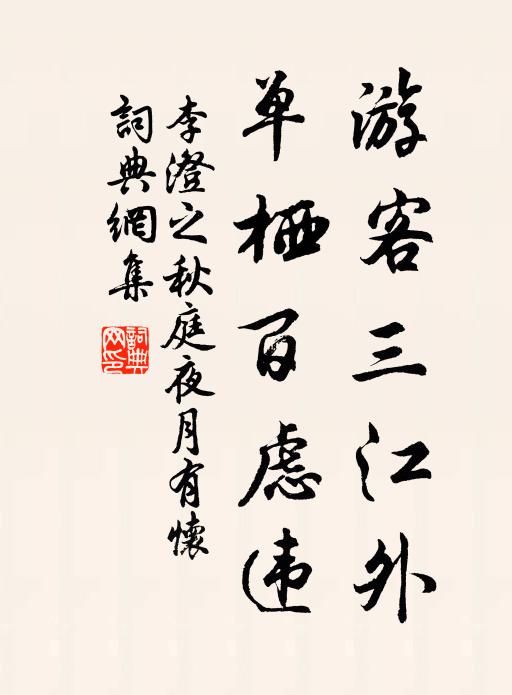 游客三江外
单栖百虑违
李澄之秋庭夜月有懷
詞典網集
詞典網印